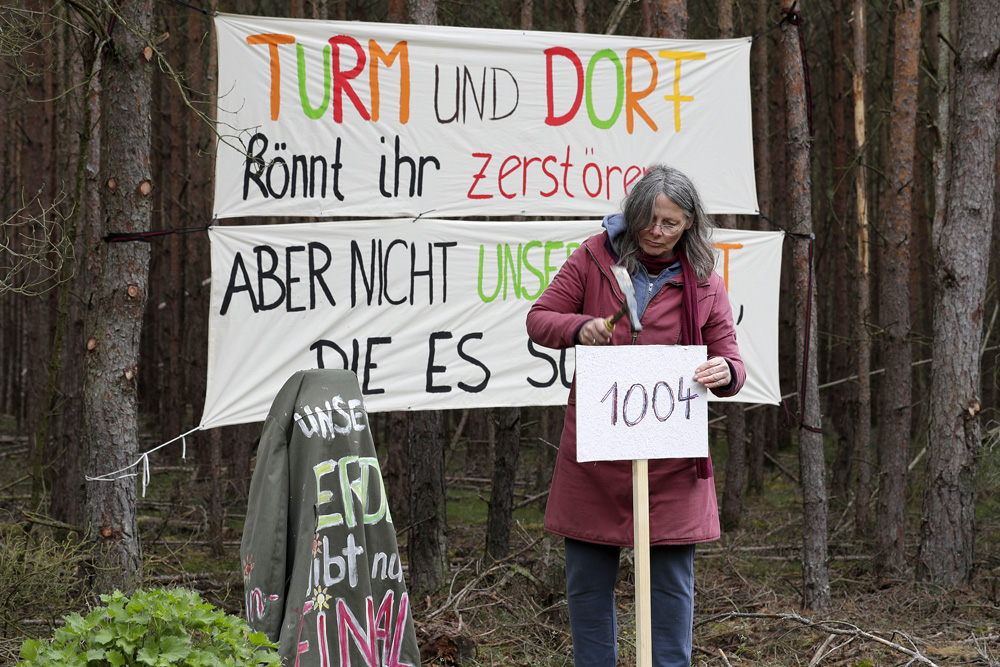 TURM UND DORF
Könnt ihr zerstören
ABER NICHT
DIE ES
1004
UNSERE
ERDE
EINMAL